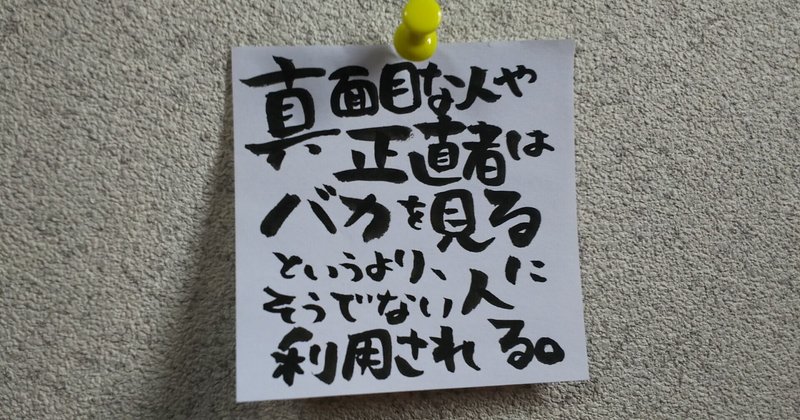 真面目な人や
正直者は
バカを見る
というより、
そうでない人に
利用される。